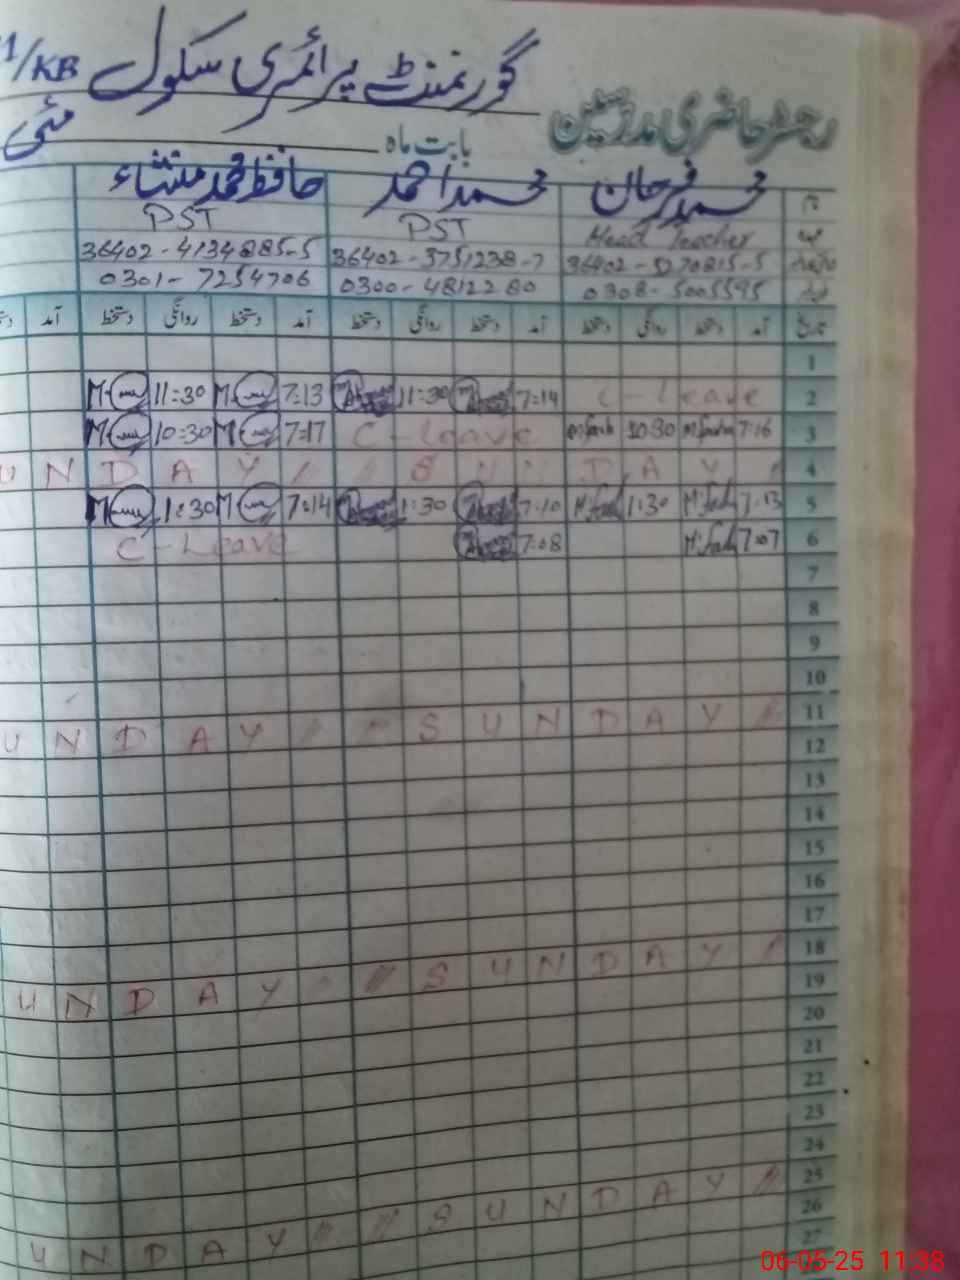 گورنمنٹ پرائمری سکول 1/KB
رجسٹر حاضری مدرسین بابت ماہ مئی
نام محمد فرحان محمد احمد حافظ محمد منشاء
عہدہ Head Teacher PST PST
36402-5270815-5 36402-3751238-7 36402-4134885-5
0308-5005595 0300-4812280 0301-7254706
تاریخ آمد دستخط روانگی دستخط آمد دستخط روانگی دستخط آمد دستخط روانگی دستخط آمد
1
2 C-Leave 7:14 11:30 7:13 11:30
3 7:16 10:30 C-Leave 7:17 10:30
4 SUNDAY UNDAY
5 7:13 1:30 7:10 1:30 7:14 1:30
6 7:07 7:08 C-Leave
7
8
9
10
11 SUNDAY UNDAY
12
13
14
15
16
17
18 SUNDAY UNDAY
19
20
21
22
23
24
25 SUNDAY UNDAY
26
27
06-05-25 11:38